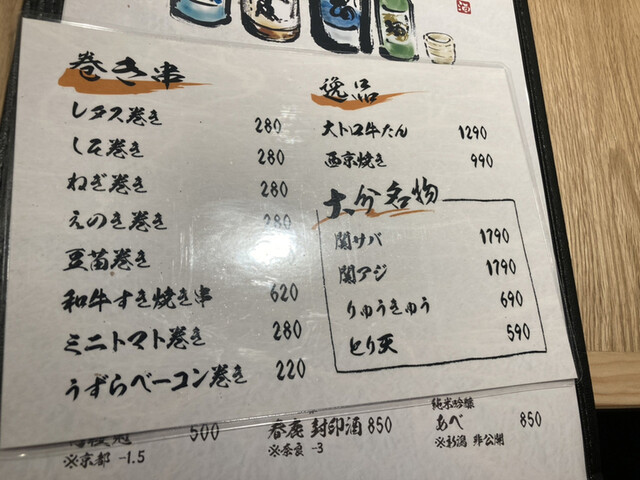 巻き串
レタス巻き 280
しそ巻き 280
ねぎ巻き 280
えのき巻き 280
豆苗巻き
和牛すき焼き串 620
ミニトマト巻き 280
うずらベーコン巻き 220
逸品
大トロ牛たん 1290
西京焼き 990
大分名物
関サバ 1790
関アジ 1790
りゅうきゅう 690
とり天 590
500
※京都 -1.5
春鹿 封印酒 850
※奈良 -3
純米吟醸
あべ 850
※新潟 非公開